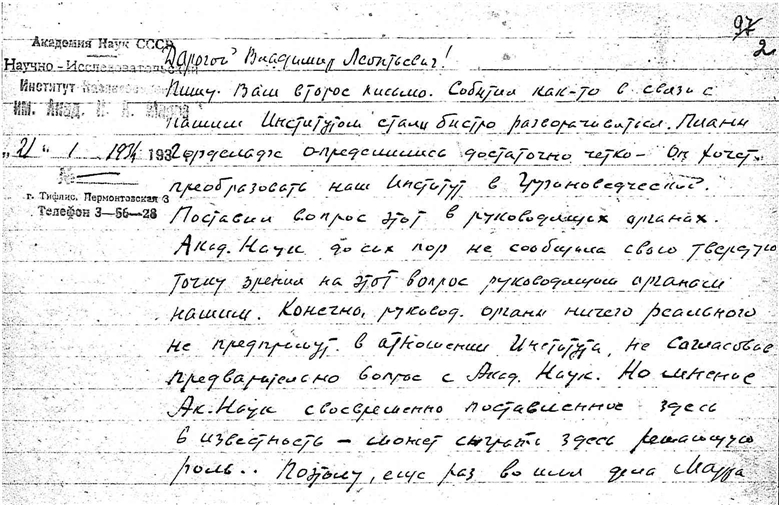 97
2
Академия Наук СССР
Научно-Исследовательский
Институт
им. Акад. Н. Я. Марра
„21“ 1 1934 193
№
г. Тифлис, Лермонтовская 3
Телефон 3—56—28
Дорогой Владимир Леонтьевич!
Пишу Вам второе письмо. События как-то в связи с
нашим Институтом стали быстро разворачиваться. Планы
определились достаточно четко – Он хочет
преобразовать наш Институт в Грузиноведческий.
Поставил вопрос этот в руководящих органах.
Акад. Наук до сих пор не сообщила свою твердую
точку зрения на этот вопрос руководящим органам
нашим. Конечно, руковод. органы ничего реального
не предпримут в отношении Института, не согласовав
предварительно вопрос с Акад. Наук. Но мнение
Ак. Наук своевременно поставленное здесь
в известность – может сыграть здесь решающую
роль.. Поэтому, еще раз во имя дела Марра